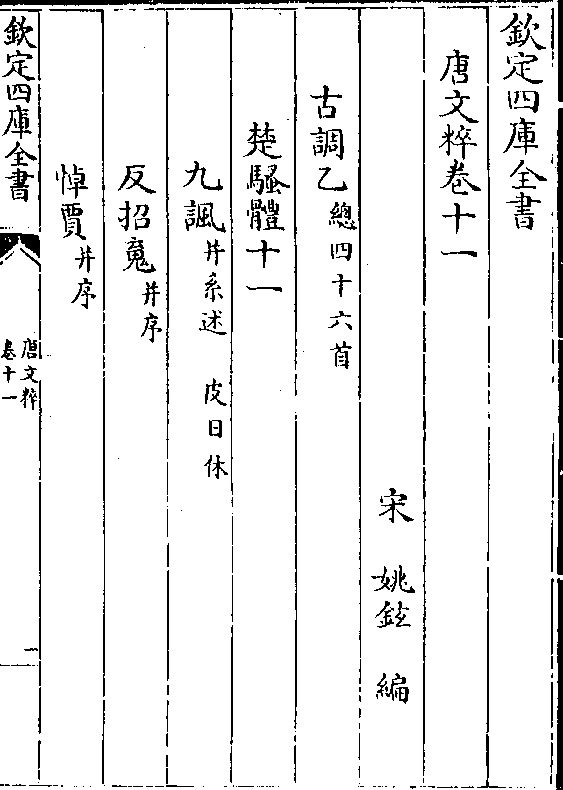 欽定四庫全書
唐文粹卷十一
宋　姚鉉　編
古調乙總四十六首
楚騷體十一
九諷并系述　皮日休
反招䰟并序
悼賈并序
欽定四庫全書
唐文粹
卷十一
一